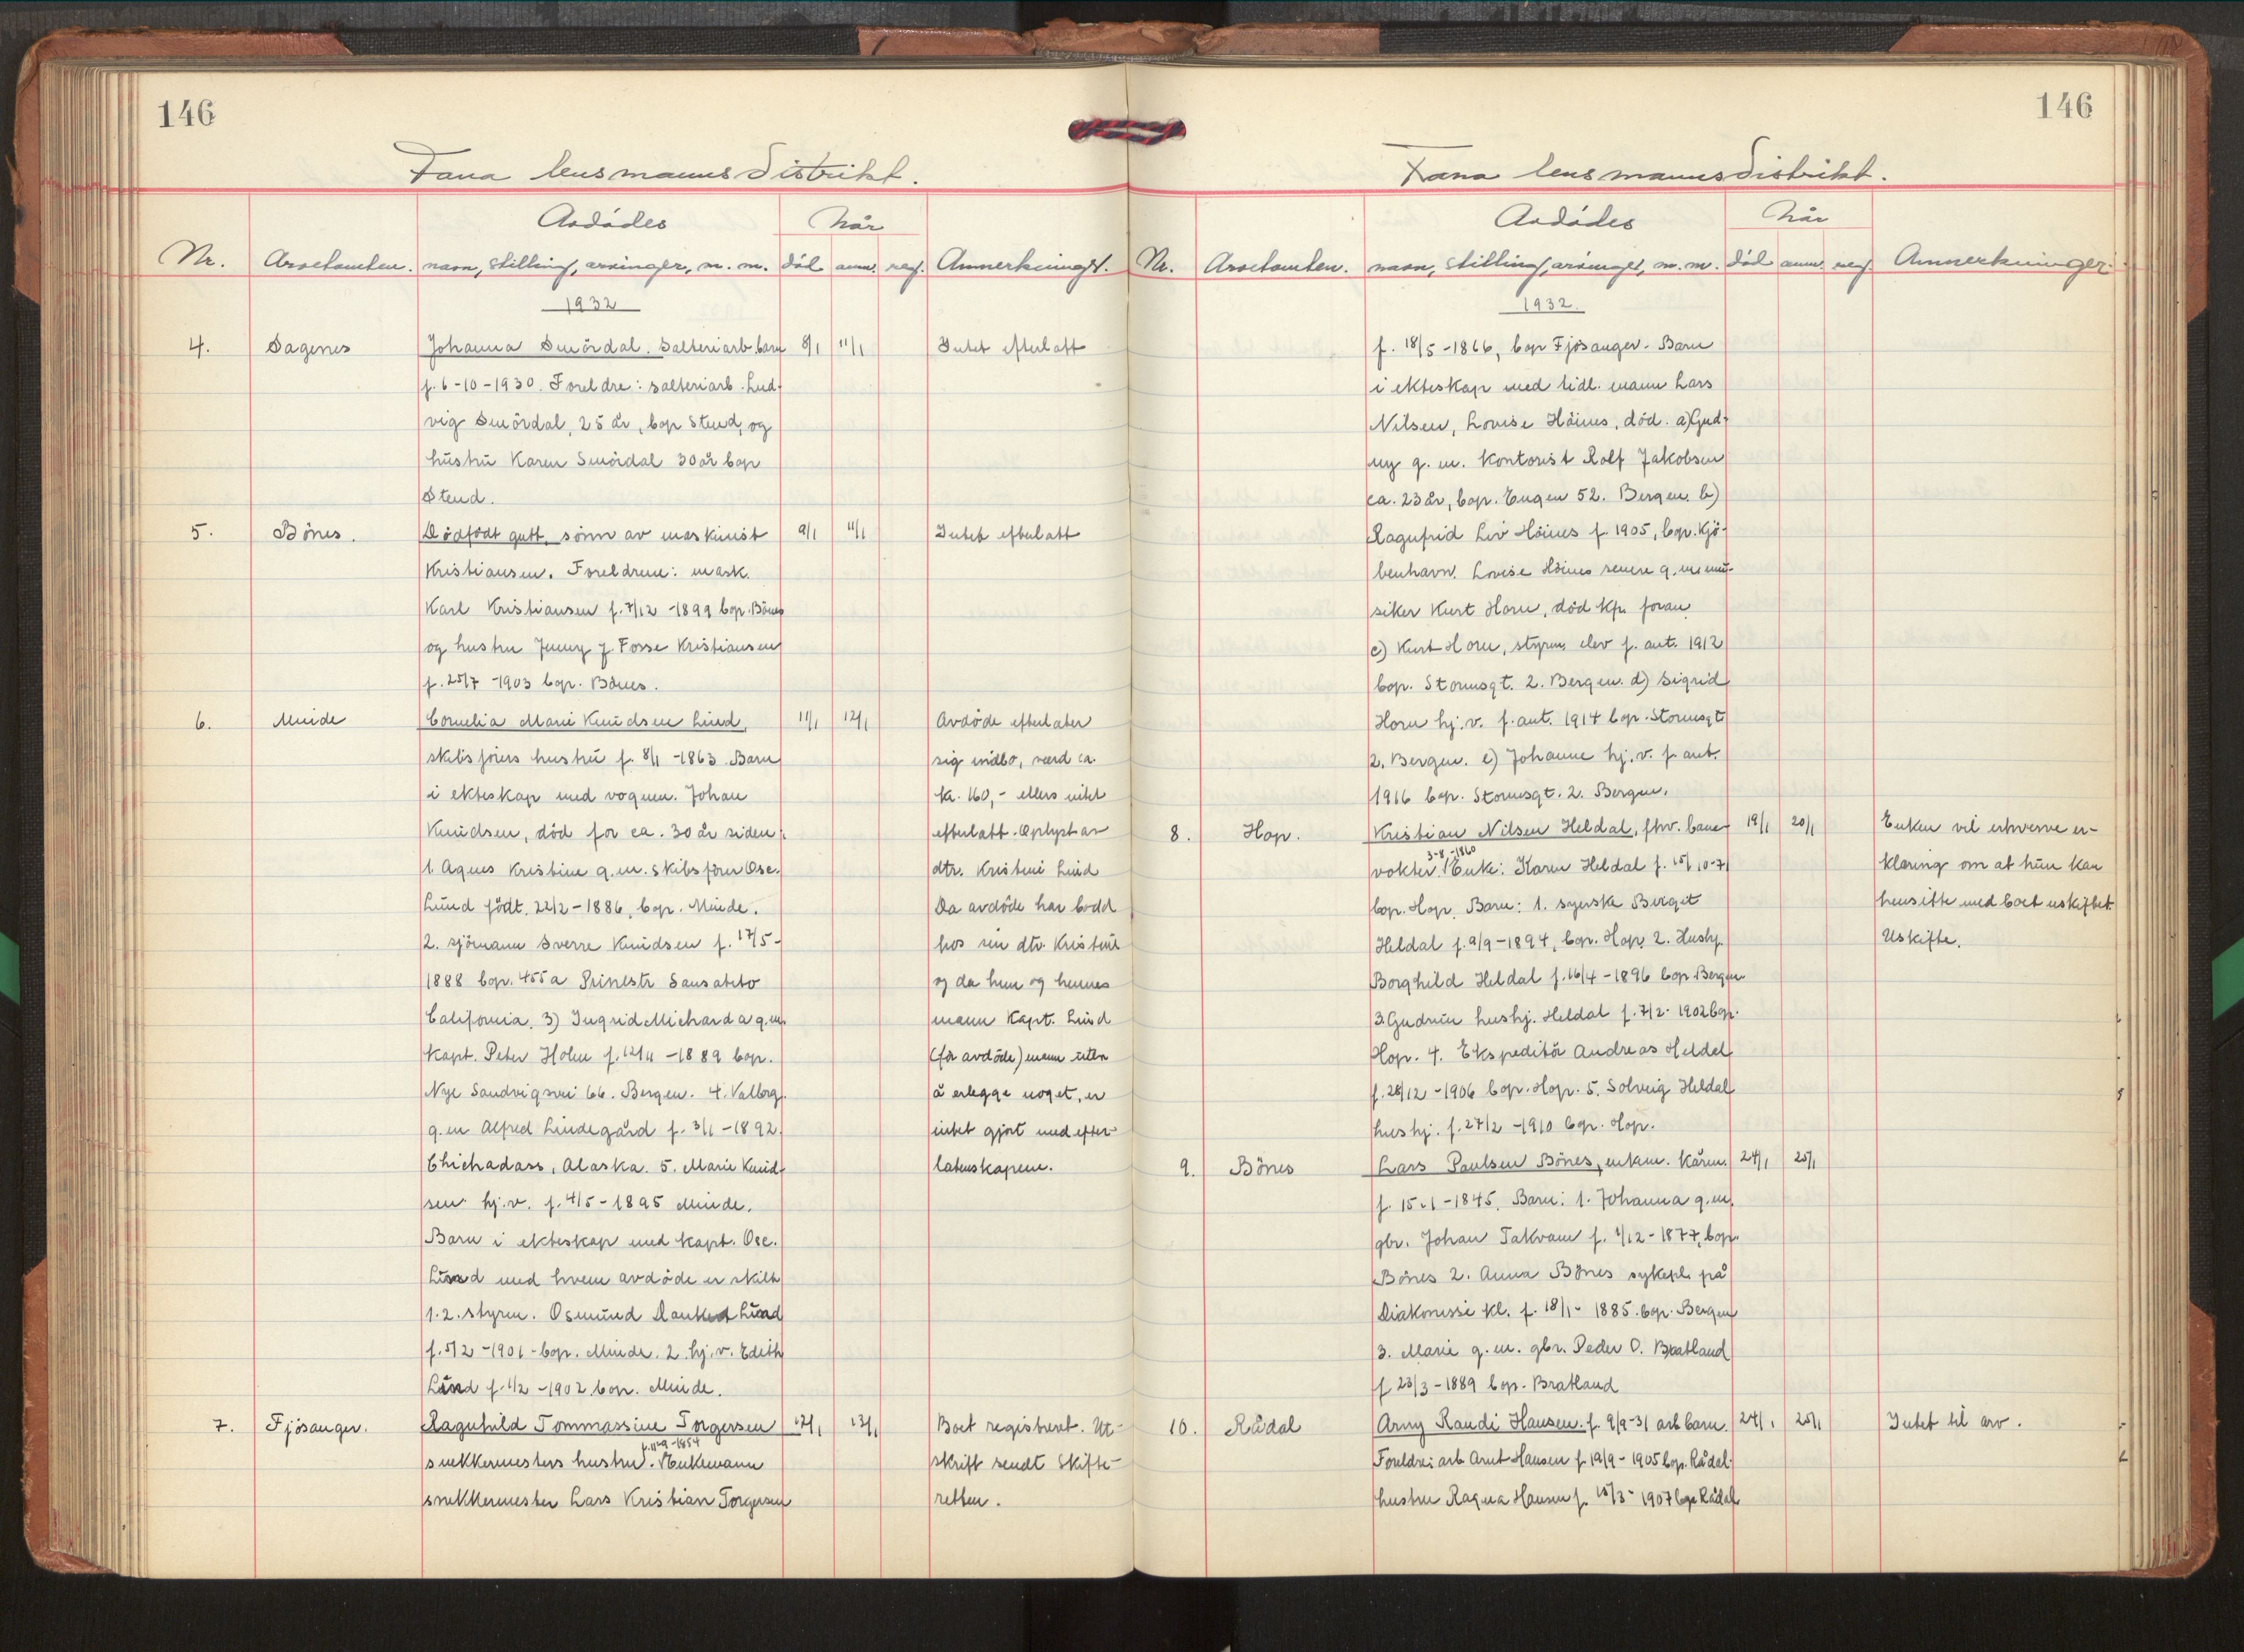 146
Fana lensmannsdistrikt.
Avdödes
Når
Nr.
Arvetomten.
navn, stilling, arvinger, m. m.
död
anm.
reg.
Anmerkninger.
1932
4.
Dagenes
Johanna Smördal. Salteriarb. barn
8/1
11/1
Intet efterlatt
f. 6-10-1930. Foreldre: salteriarb. Lud-
vig Smördal, 25 år, bop Stend, og
hustru Karen Smördal 30 år bop
Stend.
5.
Bönes.
Dödfödt gutt, sönn av maskinist
9/1
11/1
Intet efterlatt
Kristiansen. Foreldrene: mask.
Karl Kristiansen f. 7/12 -1899 bop. Bönes
og hustru Jenny f. Fosse Kristiansen
f. 25/7 -1903 bop. Bönes.
6.
Minde
Cornelia Marie Knudsen Lund,
11/1
12/1
Avdöde efterlater
skibsförers hustru f. 8/1 -1863. Barn
sig indbo, verd ca.
i ekteskap med vognm. Johan
kr. 160,- ellers intet
Knudsen, död for ca. 30 år siden:
efterlatt. Oplyst av
1. Agnes Kristine g.m. skibsförer Osc.
dtr. Kristine Lund
Lund födt. 22/2-1886, bop. Minde.
Da avdöde har bodd
2. sjömann Sverre Knudsen f. 17/5-
hos sin dtr. Kristine
1888 bop. 455a Prinestr Sausabito
og da hun og hennes
California. 3) Ingrid Micharda g.m.
mann Kapt. Lund
Kapt. Peter Holm f. 12/11 -1889 bop.
(för avdöde) mann uten
Nye Sandvigsvei 66. Bergen. 4. Valborg
å erlegge noget, er
g.m Alfred Lindegård f. 3/1-1892
intet gjort med efter-
Chichadass, Alaska. 5. Marie Knud-
latenskapene.
sen hj.v. f. 4/5-1895 Minde.
Barn i ekteskap med kapt. Osc.
Lund med hvem avdöde er skilt
1. 2. styrm. Osmund Lund
f. 5/2 -1901 - bop. Minde. 2. hj.v. Edith
Lund f. 1/2 -1902 bop. Minde.
7.
Fjösanger.
Ragnhild Tommassine Torgersen
12/1
13/1
Boet registrert. Ut-
f. 11-9-1854
snekkermesters hustru. Enkemann
skrift sendt Skifte-
snekkermester Lars Kristian Torgersen
retten.
146
Fana lensmannsdistrikt.
Avdödes
Når
Nr.
Arvetomten.
navn, stilling, arvinger, m. m.
död
anm.
reg.
Anmerkninger.
1932.
f. 18/5-1866, bop Fjösanger. Barn
i ekteskap med tidl. mann Lars
Nilsen, Lovise Höines, död. a) Gud-
ny g. m. Kontorist Rolf Jakobsen
ca. 23 år, bop. Engen 52. Bergen. b)
Ragnfrid Liv Höines f. 1905, bop. Kjö-
benhavn. Lovise Höines senere g.m. mu-
siker Kurt Horn, död kfr. foran
c) Kurt Horn, styrm. elev f. ant. 1912
bop. Stormsgt. 2. Bergen. d) Sigrid
Horn hj.v. f. ant. 1914 bop. Stormsgt
2. Bergen. e) Johanne hj.v. f. ant.
1916 bop. Stormsgt. 2. Bergen.
8.
Hop.
Kristian Nilsen Heldal, fhv. bane-
19/1
20/1
Enken vil erhverve er-
3-8-1860
vokter. Enke: Karen Heldal f. 15/10-71
klæring om at hun kan
bop. Hop. Barn: 1. syerske Birget
hensitte med boet uskiftet.
Heldal f. 9/9-1894, bop. Hop. 2. Hushj.
Uskifte.
Borghild Heldal f. 16/4-1896 bop Bergen
3. Gudrun hushj. Heldal f. 7/2- 1902 bop.
Hop. 4. Ekspeditör Andreas Heldal
f. 28/12 -1906 bop. Hop. 5. Solveig Heldal
hushj. f. 27/2 -1910 bop. Hop.
9.
Bönes
Lars Paulsen Bönes, enkm. Kårm.
24/1
25/1
f. 15-1-1845. Barn: 1. Johanna g.m.
gbr. Johan Takvam f. 1/12-1877, bop.
Bönes 2. Anna Bönes sykepl. på
Diakonisse kl. f. 18/1- 1885. bop. Bergen
3. Marie g. m. gbr. Peder O. Bratland
f 23/3-1889 bop. Bratland
10.
Rådal
Arny Randi Hansen. f. 9/9-31 arb barn.
24/1
25/1
Intet til arv.
Foreldre: arb Arnt Hansen f 19/9-1905 bop. Rådal.
hustru Ragna Hansen f. 15/3- 1907 bop Rådal